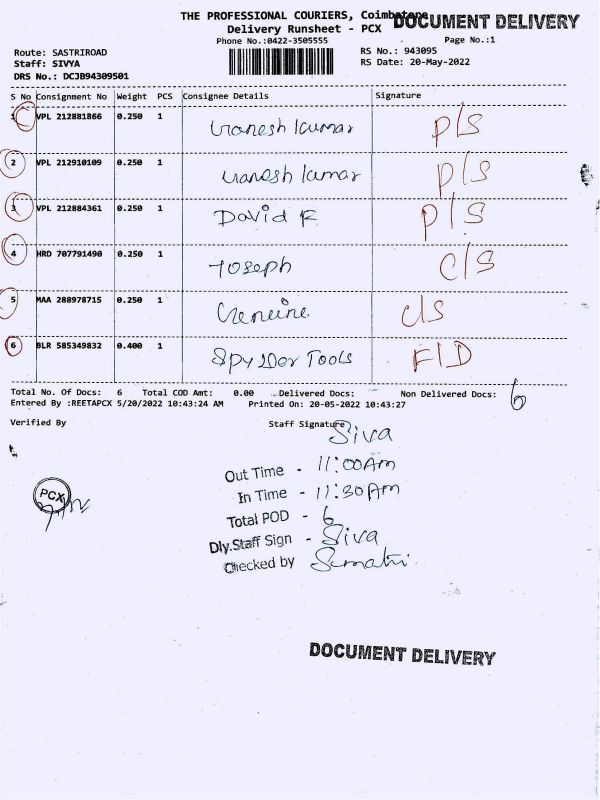 THE PROFESSIONAL COURIERS, Coimbatore
DOCUMENT DELIVERY
Delivery Runsheet - PCX
Phone No.:0422-3505555
Page No.:1
Route: SASTRIROAD
RS No.: 943095
Staff: SIVYA
RS Date: 20-May-2022
DRS No.: DCJB94309501
S No Consignment No Weight PCS Consignee Details Signature
1 VPL 212881866 0.250 1 Ganesh kumar P/S
2 VPL 212910109 0.250 1 Ganesh kumar P/S
3 VPL 212884361 0.250 1 David F P/S
4 HRD 707791490 0.250 1 Joseph C/S
5 MAA 288978715 0.250 1 Genuine C/S
6 BLR 585349832 0.400 1 Spyder Tools F/D
Total No. Of Docs: 6 Total COD Amt: 0.00 Delivered Docs: Non Delivered Docs: 6
Entered By :REETAPCX 5/20/2022 10:43:24 AM Printed On: 20-05-2022 10:43:27
Verified By Staff Signature Siva
Out Time - 11:00Am
In Time - 11:30Am
PCX
Total POD - 6
Dly.Staff Sign - Siva
Checked by Sumathi
DOCUMENT DELIVERY